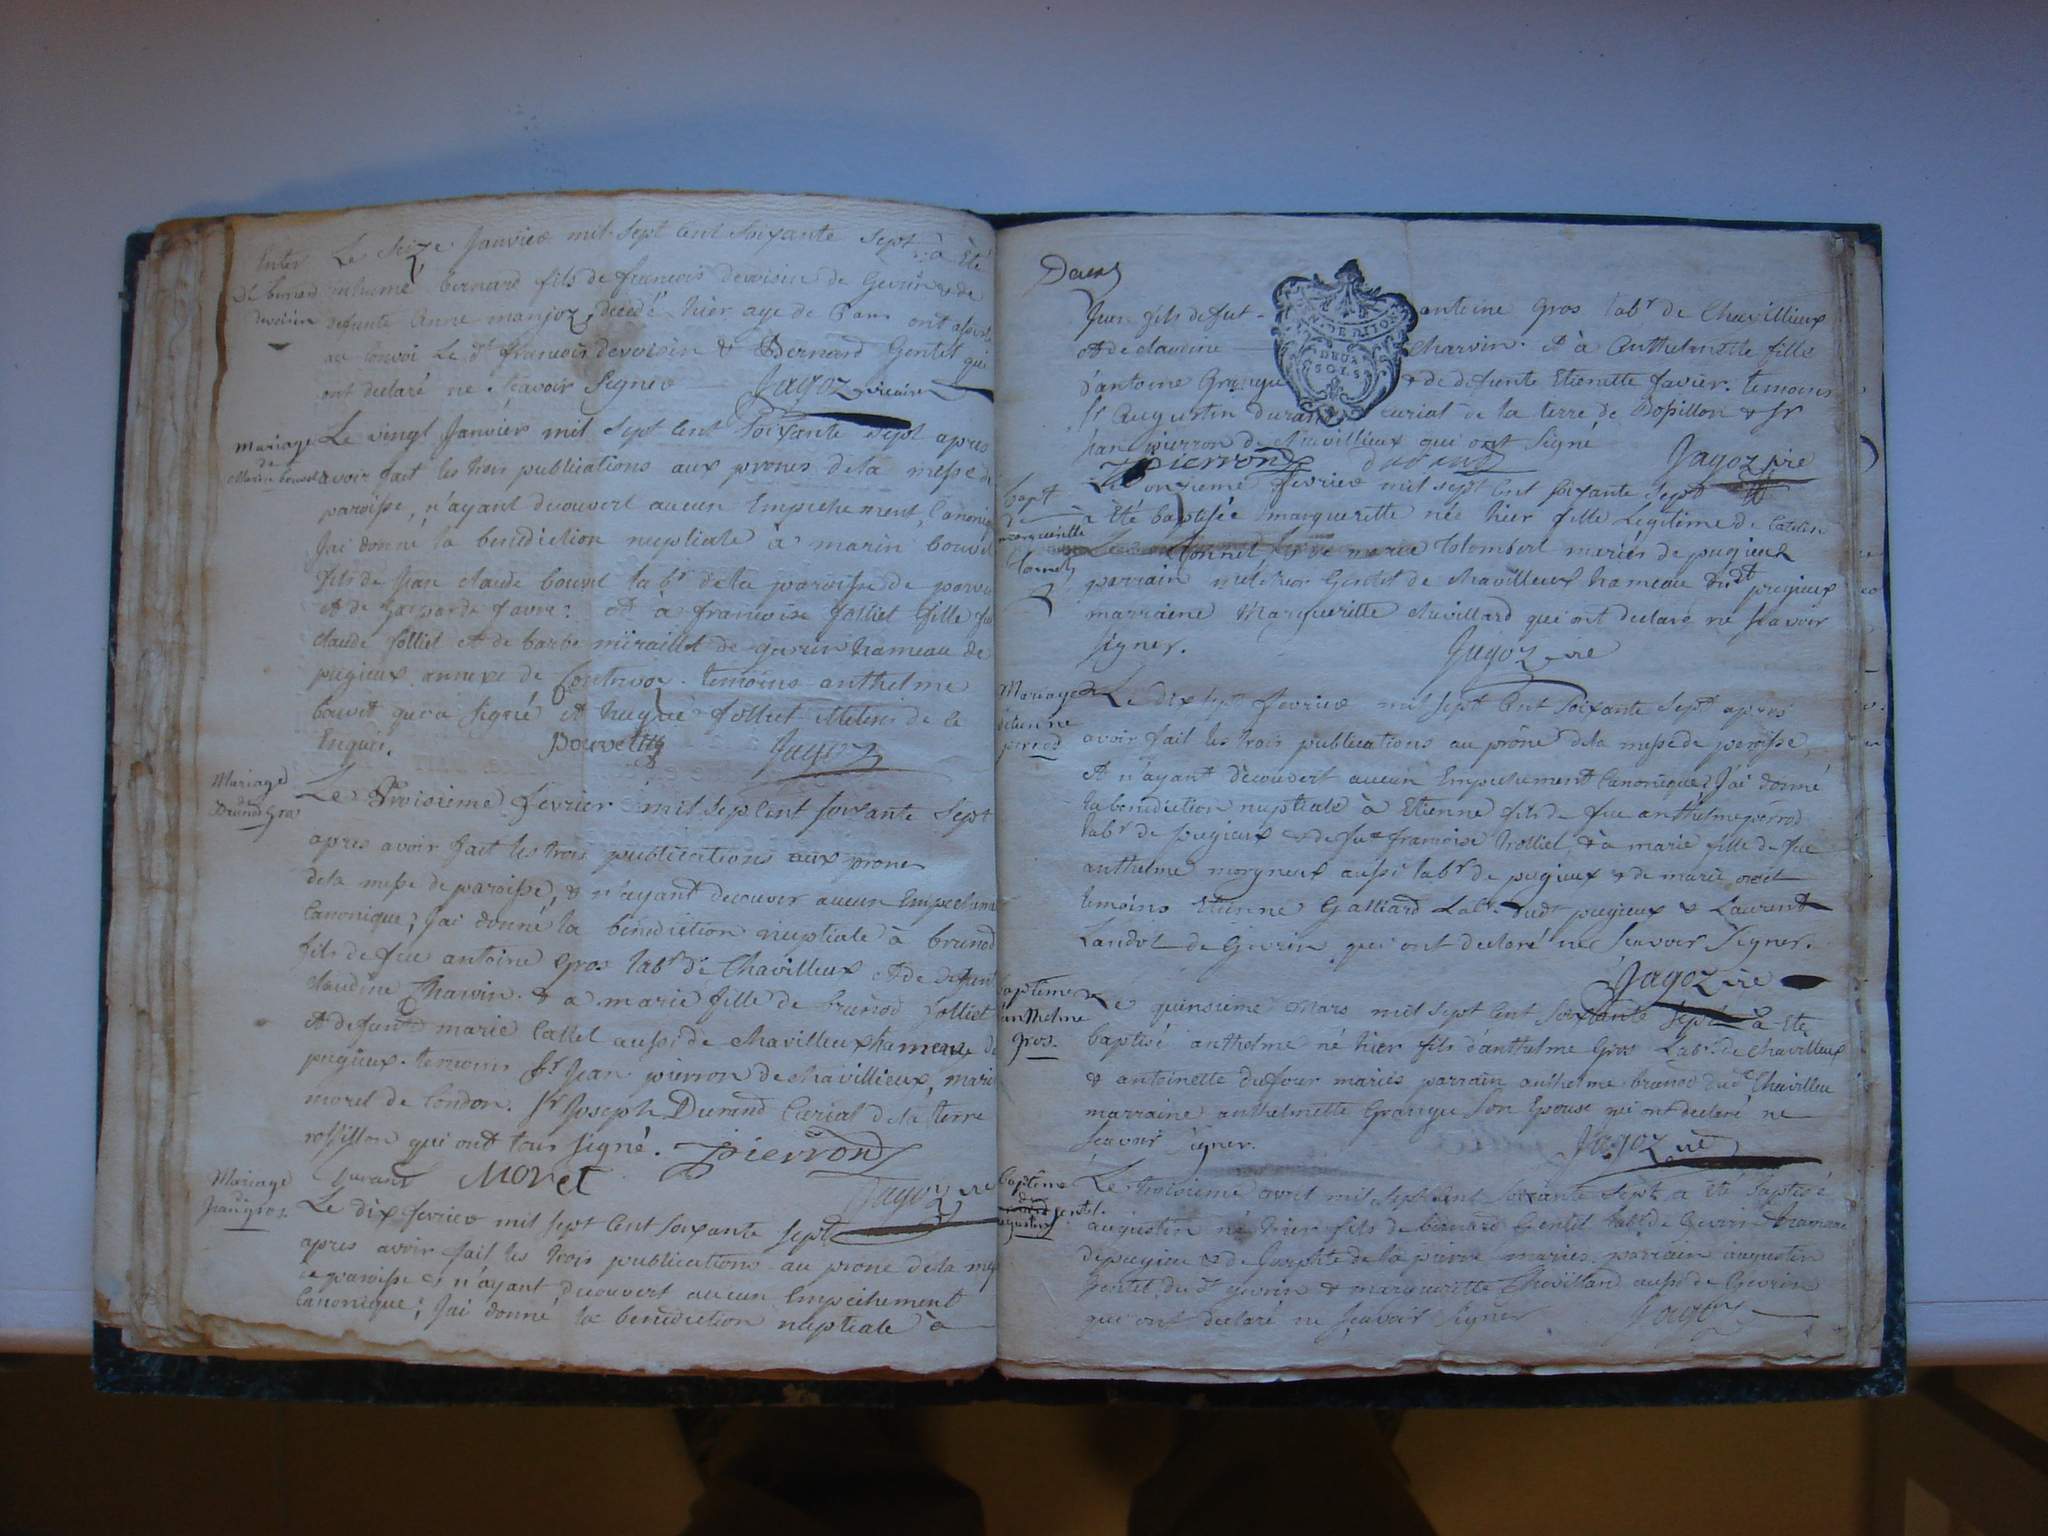 Enter
de bernard
devoisin
Le Seize Janvier mil Sept Cent Soixante Sept à Eté
inhumé bernard fils de francois devoisin de Gevrin & de
defunte Anne manjoz, décédé hier aye de ont assisté
au Convoi Le dt francois devoisin & Bernard Gentil qui
ont declaré ne Scavoir Signer Jagoz vicaire
Mariage
de
Marin bouvet
Le vingt Janvier mil Sept Cent Soixante Sept apres
avoir fait les trois publications aux prones dela messe de
paroisse, n'ayant decouvert aucun Empechement Canoniq
Jai donné la benediction nuptiale a marin bouvet
fils de Jean claude bouvet labr dela paroisse de
Et de gasparde favre: Et à francoise folliet fille
claude folliet et de barbe miraillet de gevrin hameau de
pugieux annexe de Contrevoz. temoins anthelme
bouvet qui a Signé Et hugue folliet de ce
Enquis. Bouvet Jagoz
Mariage
de
Brunod Gros
Le Troisieme fevrier mil Sept Cent Soixante Sept
apres avoir fait les trois publications aux prones
dela messe de paroisse, & n'ayant decouver aucun Empechem
Canonique, Jai donné la bénédiction nuptiale à brunod
fils de feu antoine Gros labr de Chavillieux Et de defun
claudine Charvin. & a marie fille de brunod folliet
Et defunte marie Callet aussi de chavillieux hameau de
pugieux. temoins Sr Jean pierron de chavillieux, marie
morel de Condon. Sr Joseph Durand Curial dela terre
rossillon qui ont tous signé. Jpierron
durand Moret Jagoz vre
Mariage
de
Jean gros
Le dix fevrier mil Sept Cent Soixante Sept
apres avoir fait les trois publications au prone dela mes
de paroisse & n'ayant decouvert aucun Empechement
Canonique; Jai donné la benediction nuptiale à
Jean fils de fut antoine Gros labr de Chavillieux
Et de claudine Charvin. Et à Anthelmette fille
d'antoine Grangu & de defunte Etienette favier. temoins
Sr Augustin durand curial de la terre de Rossillon & Sr
Jean pierron de chavillieux qui ont Signé
GEN. DE DIJON
DEUX
SOLS
Jpierron durand Jagoz vre
bapt
de
margueritte
tonnet
Le onzieme fevrier mil Sept Cent Soixante Sept
à Eté baptisée margueritte née hier fille Legitime de
tonnet & de marie Colombet mariés de pugieux
parrain melchior Gentil de chavillieux hameau dudt pugieux
marraine Marguerite chavillard qui ont declaré ne Scavoir
signer. Jagoz vre
Mariage
d'etienne
perrod
Le dix Sept fevrier mil Sept Cent Soixante Sept apres
avoir fait les trois publications au prône dela messe de paroisse,
Et n'ayant decouvert aucun Empechement Canonique, Jai donné
la benediction nuptiale à Etienne fils de feu anthelme perrod
labr de pugieux & de fue francoise trolliet, & à marie fille de feu
anthelme morgneux aussi labr de pugieux & de marie
temoins Etienne Galliard Labr dudt pugieux & Laurent
Landot de Gevrin qui ont declaré ne Scavoir Signer.
Jagoz vre
baptême
d'anthelme
Gros.
Le quinsieme Mars mil Sept Cent Soixante Sept a Eté
baptisé anthelme né hier fils d'anthelme Gros Labr de Chavillieux
& antoinette dufour mariés parrain anthelme brunod dudt Chavillieu
marraine anthelmette Grangu Son Epouse qui ont declaré ne
Scavoir Signer. Jagoz vre
baptême
de
gentil
augustin
Le troisieme avril mil Sept Cent Soixante Sept a été baptisé
augustin né hier fils de bernard Gentil labr de Gevrin hameau
de pugieu & de Josephte de la pierre mariés parrain augustin
Gentil du dt gevrin & marguerite Chavillard aussi de Gevrin
qui ont declaré ne Scavoir Signer Jagoz